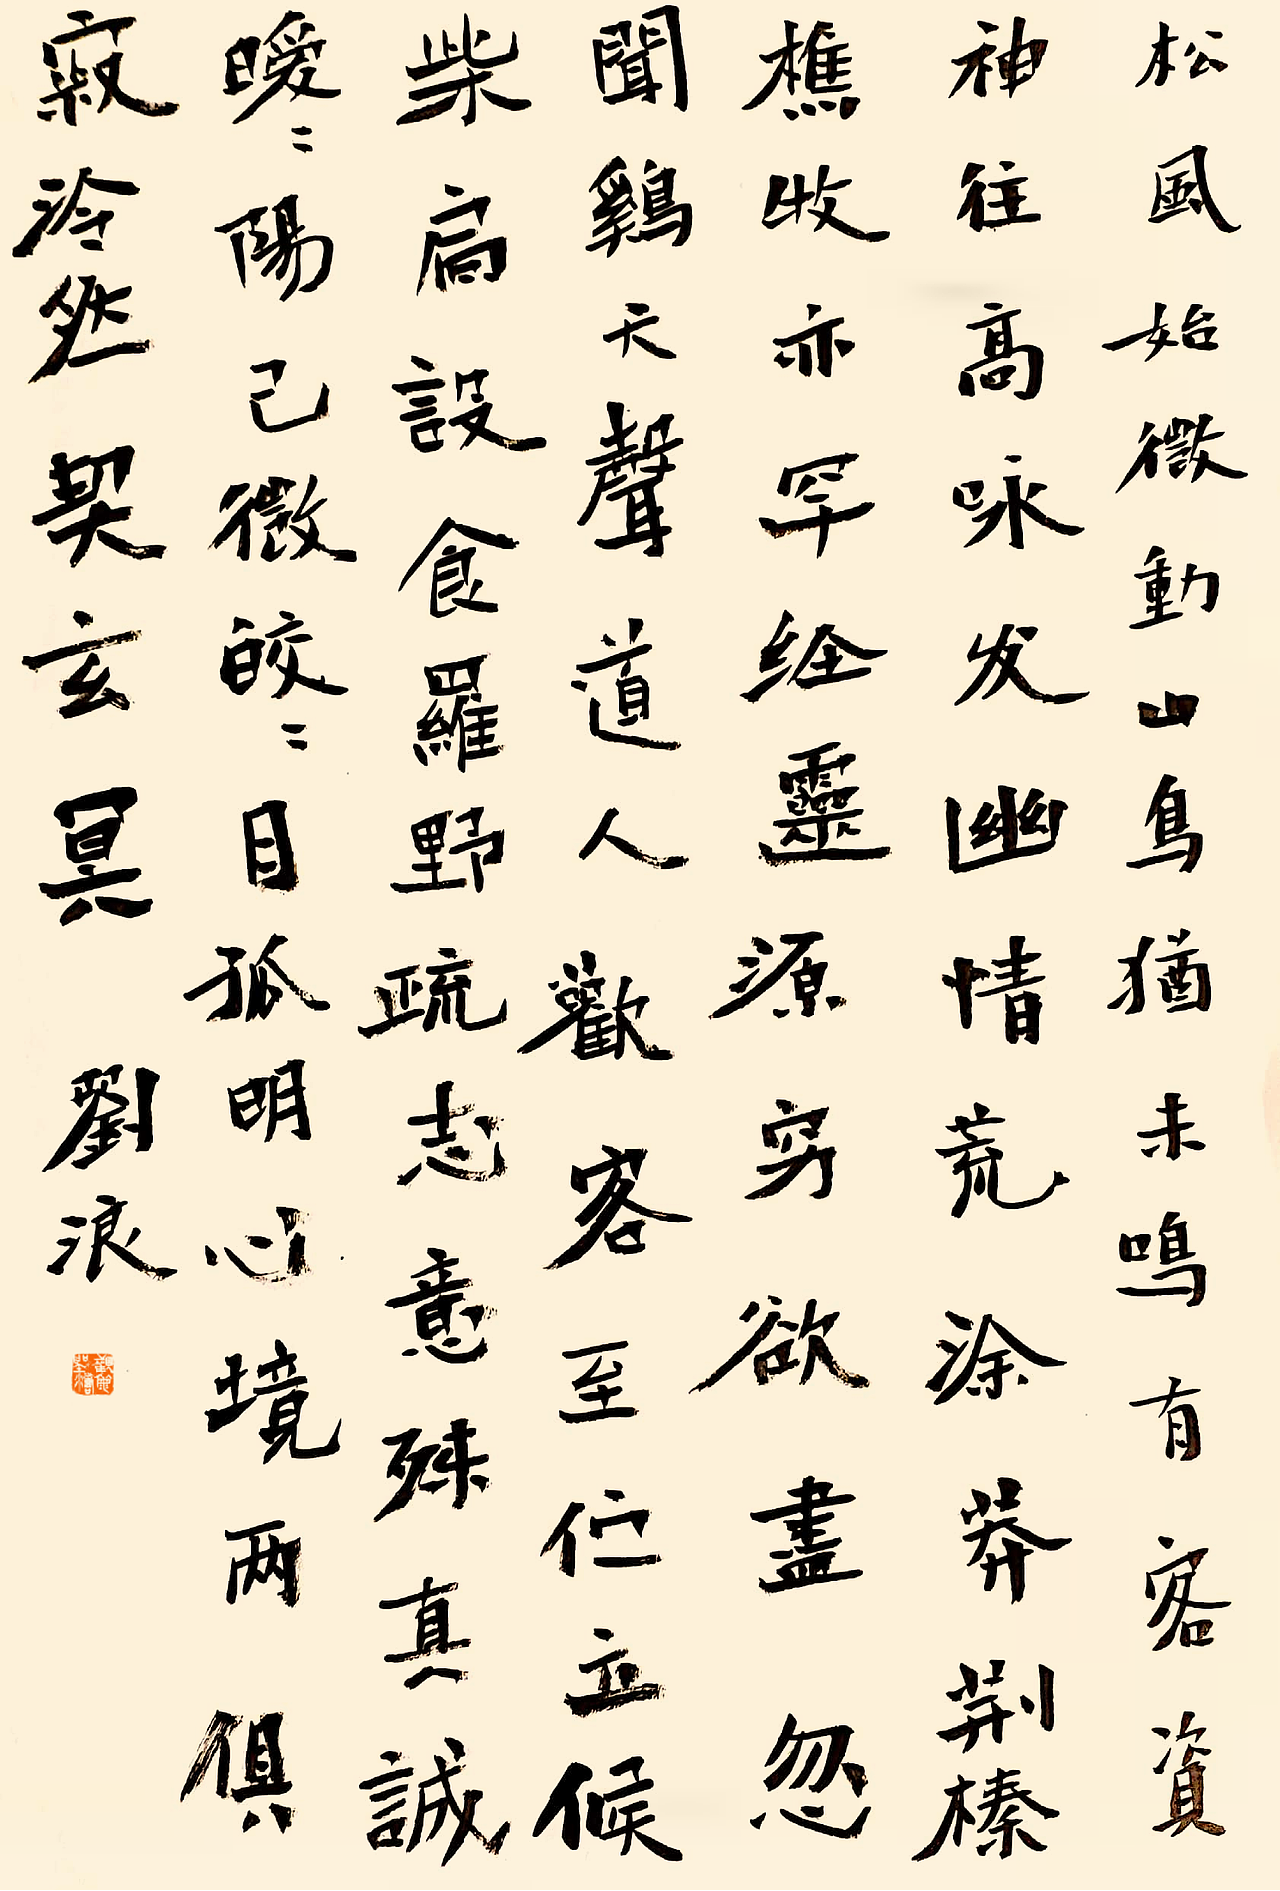 松風始微動山鳥猶未鳴有客資
神往高咏发幽情荒涂莽荆榛
樵收亦罕经靈源穷欲盡忽
聞鷄天聲道人歡客至伫立候
柴扃設食羅野疏志意殊真誠
曖〻陽已微皎〻目孤明心境两俱
寂冷然契玄冥 劉浪